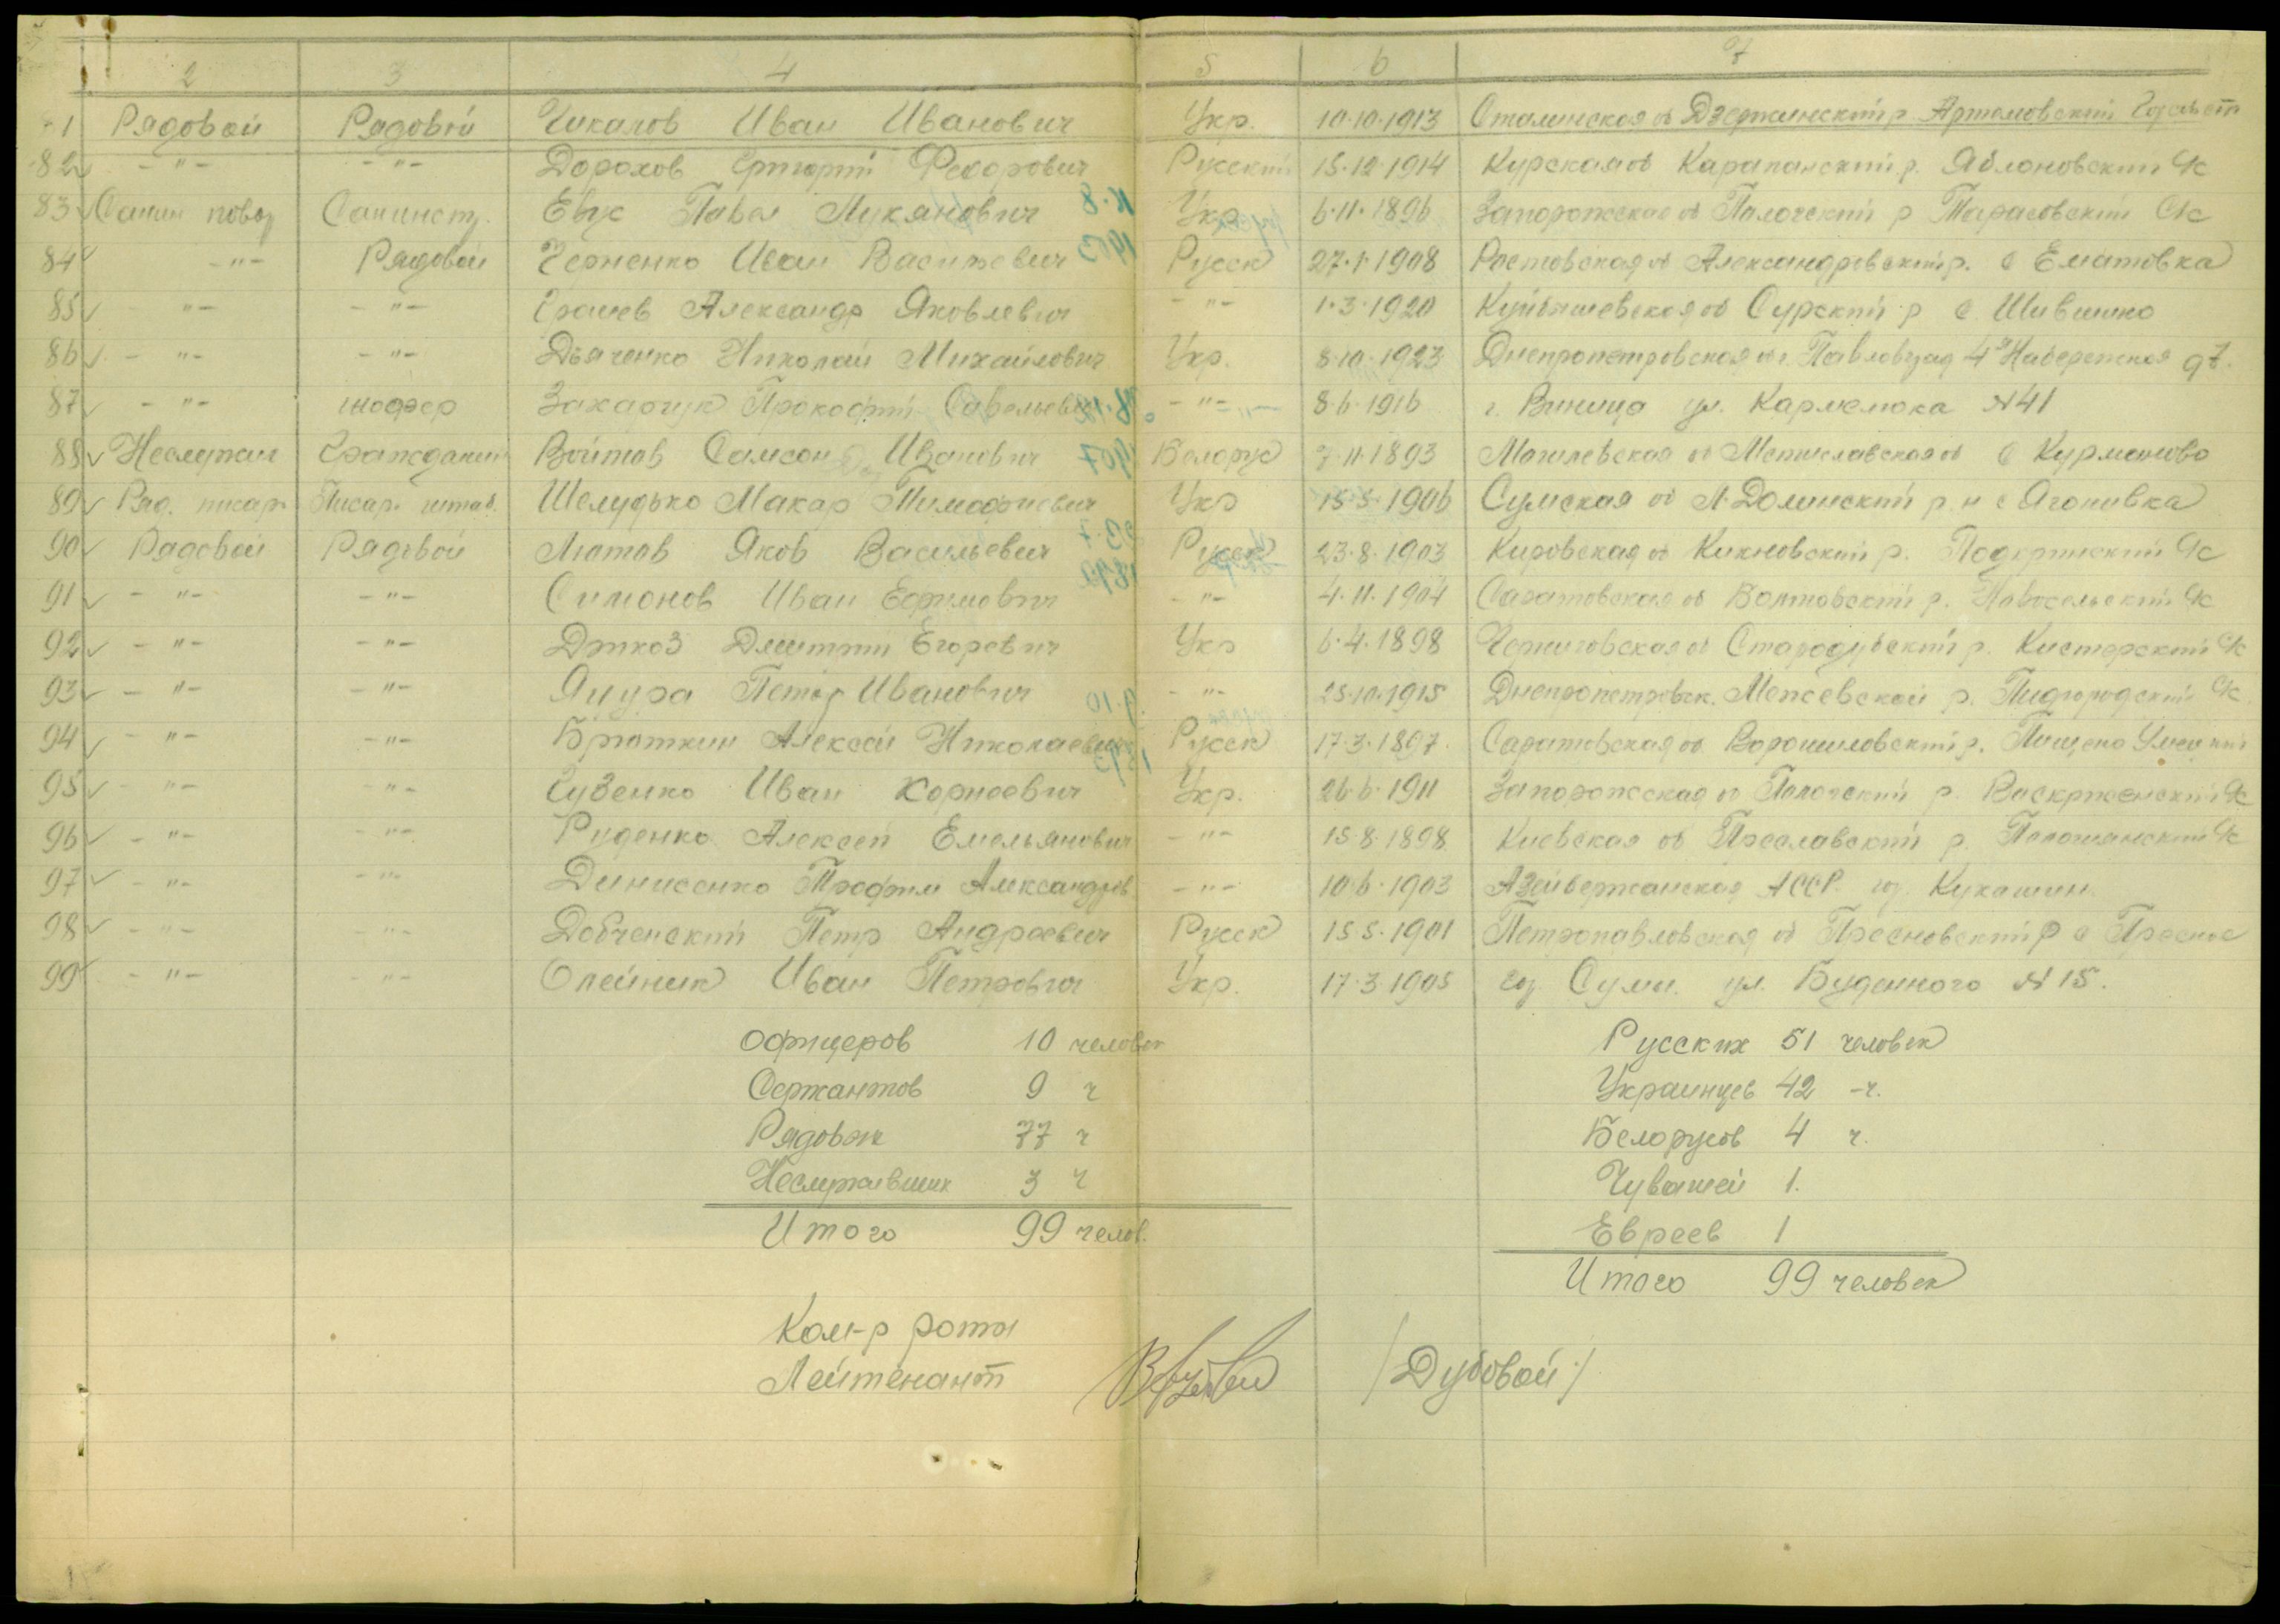 2 3 4 5 6 7
81 Рядовой Рядовой Чикалов Иван Иванович Укр. 10.10.1913 Сталинская об Дзержинский р. Артемовский
82 -"- -"- Дорохов Григорий Федорович Русский 15.12.1914 Курская об Яблоновский с/с
83 Санинстр. Евус Павел Лукянович Укр 6.11.1896 Запорожская об Пологский р Тарасовский с/с
84 -"- Рядовой Черненко Иван Васильевич Русск 27.1.1908 Ростовская об Александровский р. с Ематовка
85 -"- -"- Грачев Александр Яковлевич -"- 1.3.1920 Куйбышевская об Сурский р с.
86 -"- -"- Дьяченко Николай Михайлович Укр. 8.10.1923 Днепропетровская об г. Павлоград 4я Набережная
87 -"- шофер Захарчук Прокофий Савельевич -"- 8.6.1916 г. Виница ул. Кармелюка №41
88 Неслужил Гражданин Войтов Самсон Иванович Белорус 11.1893 Могилевская об с Курманово
89 Ряд. писарь Писарь штаб. Шелудько Макар Тимофиевич Укр 15.5.1906 Сумская об Л-Долинский р-н с
90 Рядовой Рядовой Лютов Яков Васильевич Русск 23.8.1903 Кировская об Кикновский р.
91 -"- -"- Симонов Иван Ефимович -"- 4.11.1904 Саратовская об р. Новосельский с/с
92 -"- -"- Дмитрий Егорович Укр 6.4.1898 Черниговская об Стародубский р. Кистерский с/с
93 -"- -"- Янура Петр Иванович -"- 25.10.1915 Днепропетровск. Межевской р. Пидгородский с/с
94 -"- -"- Брюткин Алексей Николаевич Русск 17.3.1897. Саратовская об Ворошиловский р.
95 -"- -"- Гузенко Иван Корнеевич Укр. 26.6.1911 Запорожская об Пологский р. с/с
96 -"- -"- Руденко Алексей Емельянович -"- 15.8.1898 Киевская об р. с/с
97 -"- -"- Динисенко Трофим Александров. -"- 10.6.1903 Азейбержанская АССР. гор. Кукашин.
98 -"- -"- Добченский Петр Андреевич Русск 15.5.1901 Петропавловская об Пресновский р с Пресное
99 -"- -"- Олейник Иван Петрович Укр. 17.3.1905 гор Сумы. ул. Буденного №15.
Офицеров 10 человек Русских 51 человек
Сержантов 9 ч Украинцев 42 -ч.
Рядовых 77 ч Белорусов 4 ч.
Неслуживших 3 ч Чувашей 1.
Евреев 1
Итого 99 челов.
Итого 99 человек
Ком-р роты
Лейтенант /Дубовой/